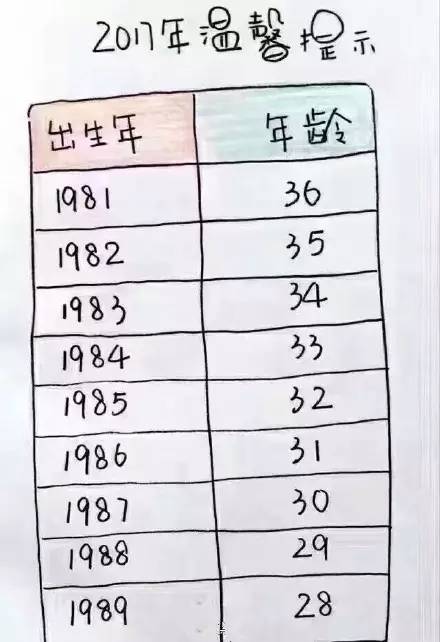 2017年温馨提示
出生年 年龄
1981 36
1982 35
1983 34
1984 33
1985 32
1986 31
1987 30
1988 29
1989 28